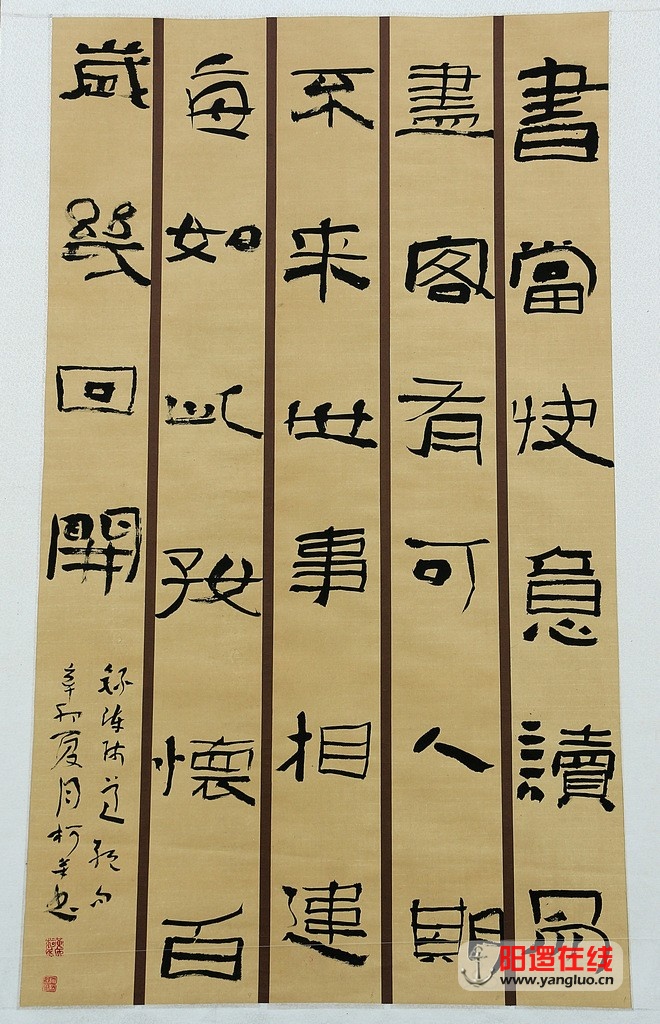 書當快意讀易
盡客有可人期
不来世事相違
每如此好懷百
歲幾回開
錄陳師道絕句
辛卯夏月柯書
阳逻在线
www.yangluo.cn